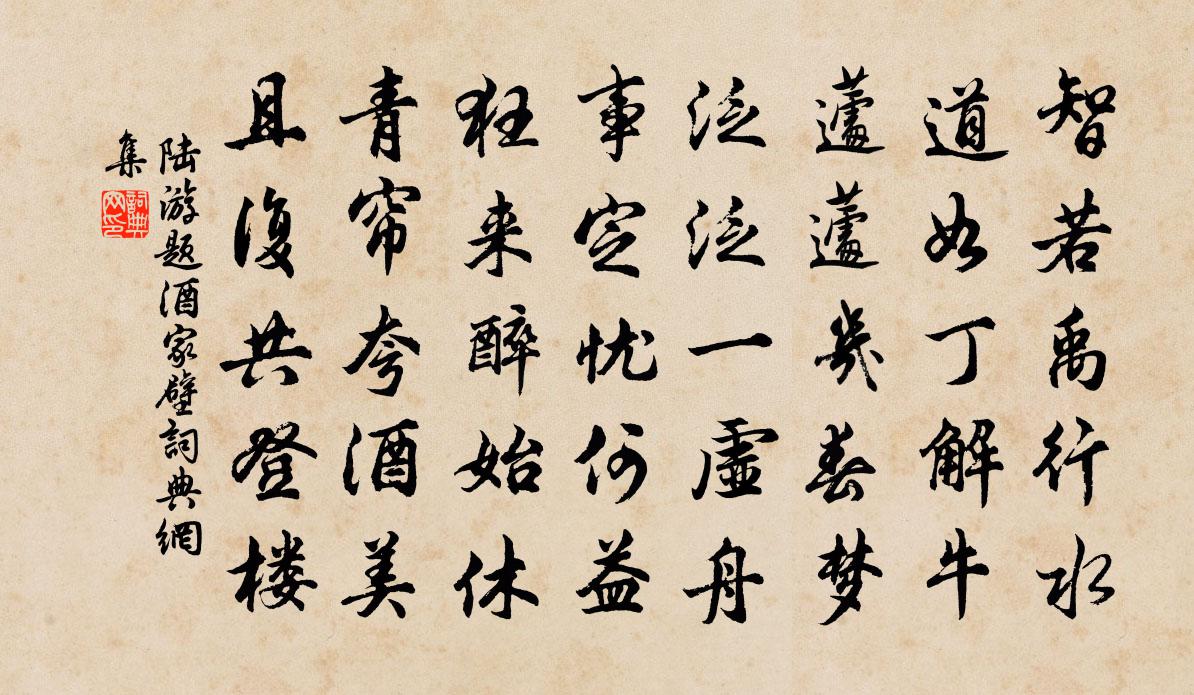 智若禹行水
道如丁解牛
蘧蘧几春梦
泛泛一虚舟
事定忧何益
狂来醉始休
青帘夸酒美
且复共登楼
陆游题酒家壁詞典網
集
詞典网印